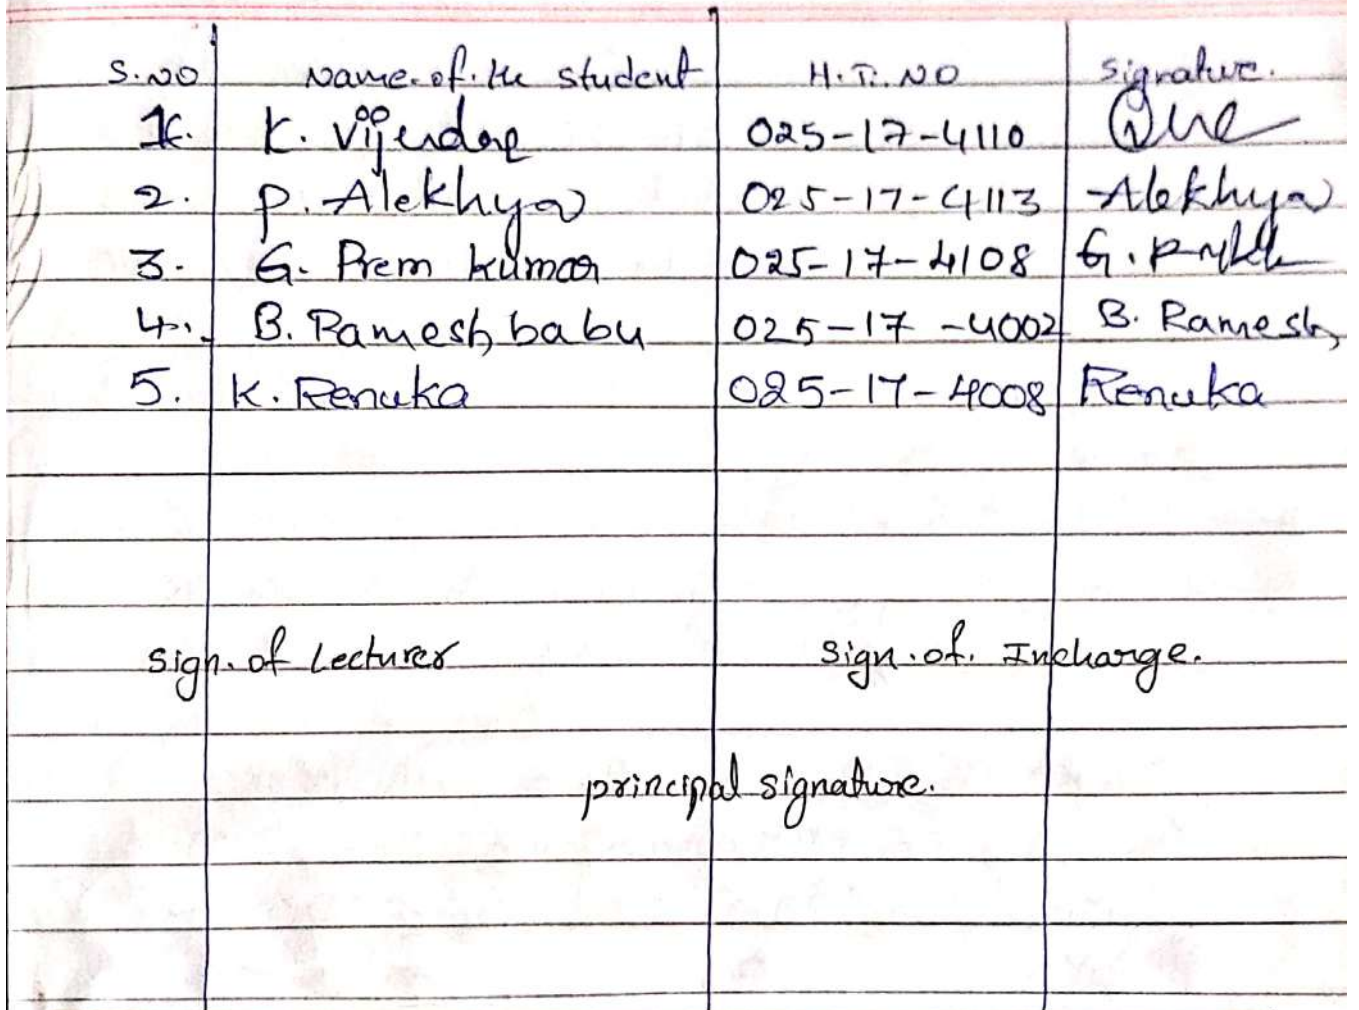 S.NO Name of the student H.T. NO Signature.
1. K. Vijendar 025-17-4110
2. P. Alekhya 025-17-4113 Alekhya
3. G. Prem kumar 025-17-4108 G.
4. B. Ramesh babu 025-17-4002 B. Ramesh
5. K. Renuka 025-17-4008 Renuka
Sign. of Lecturer Sign. of. Incharge.
principal signature.